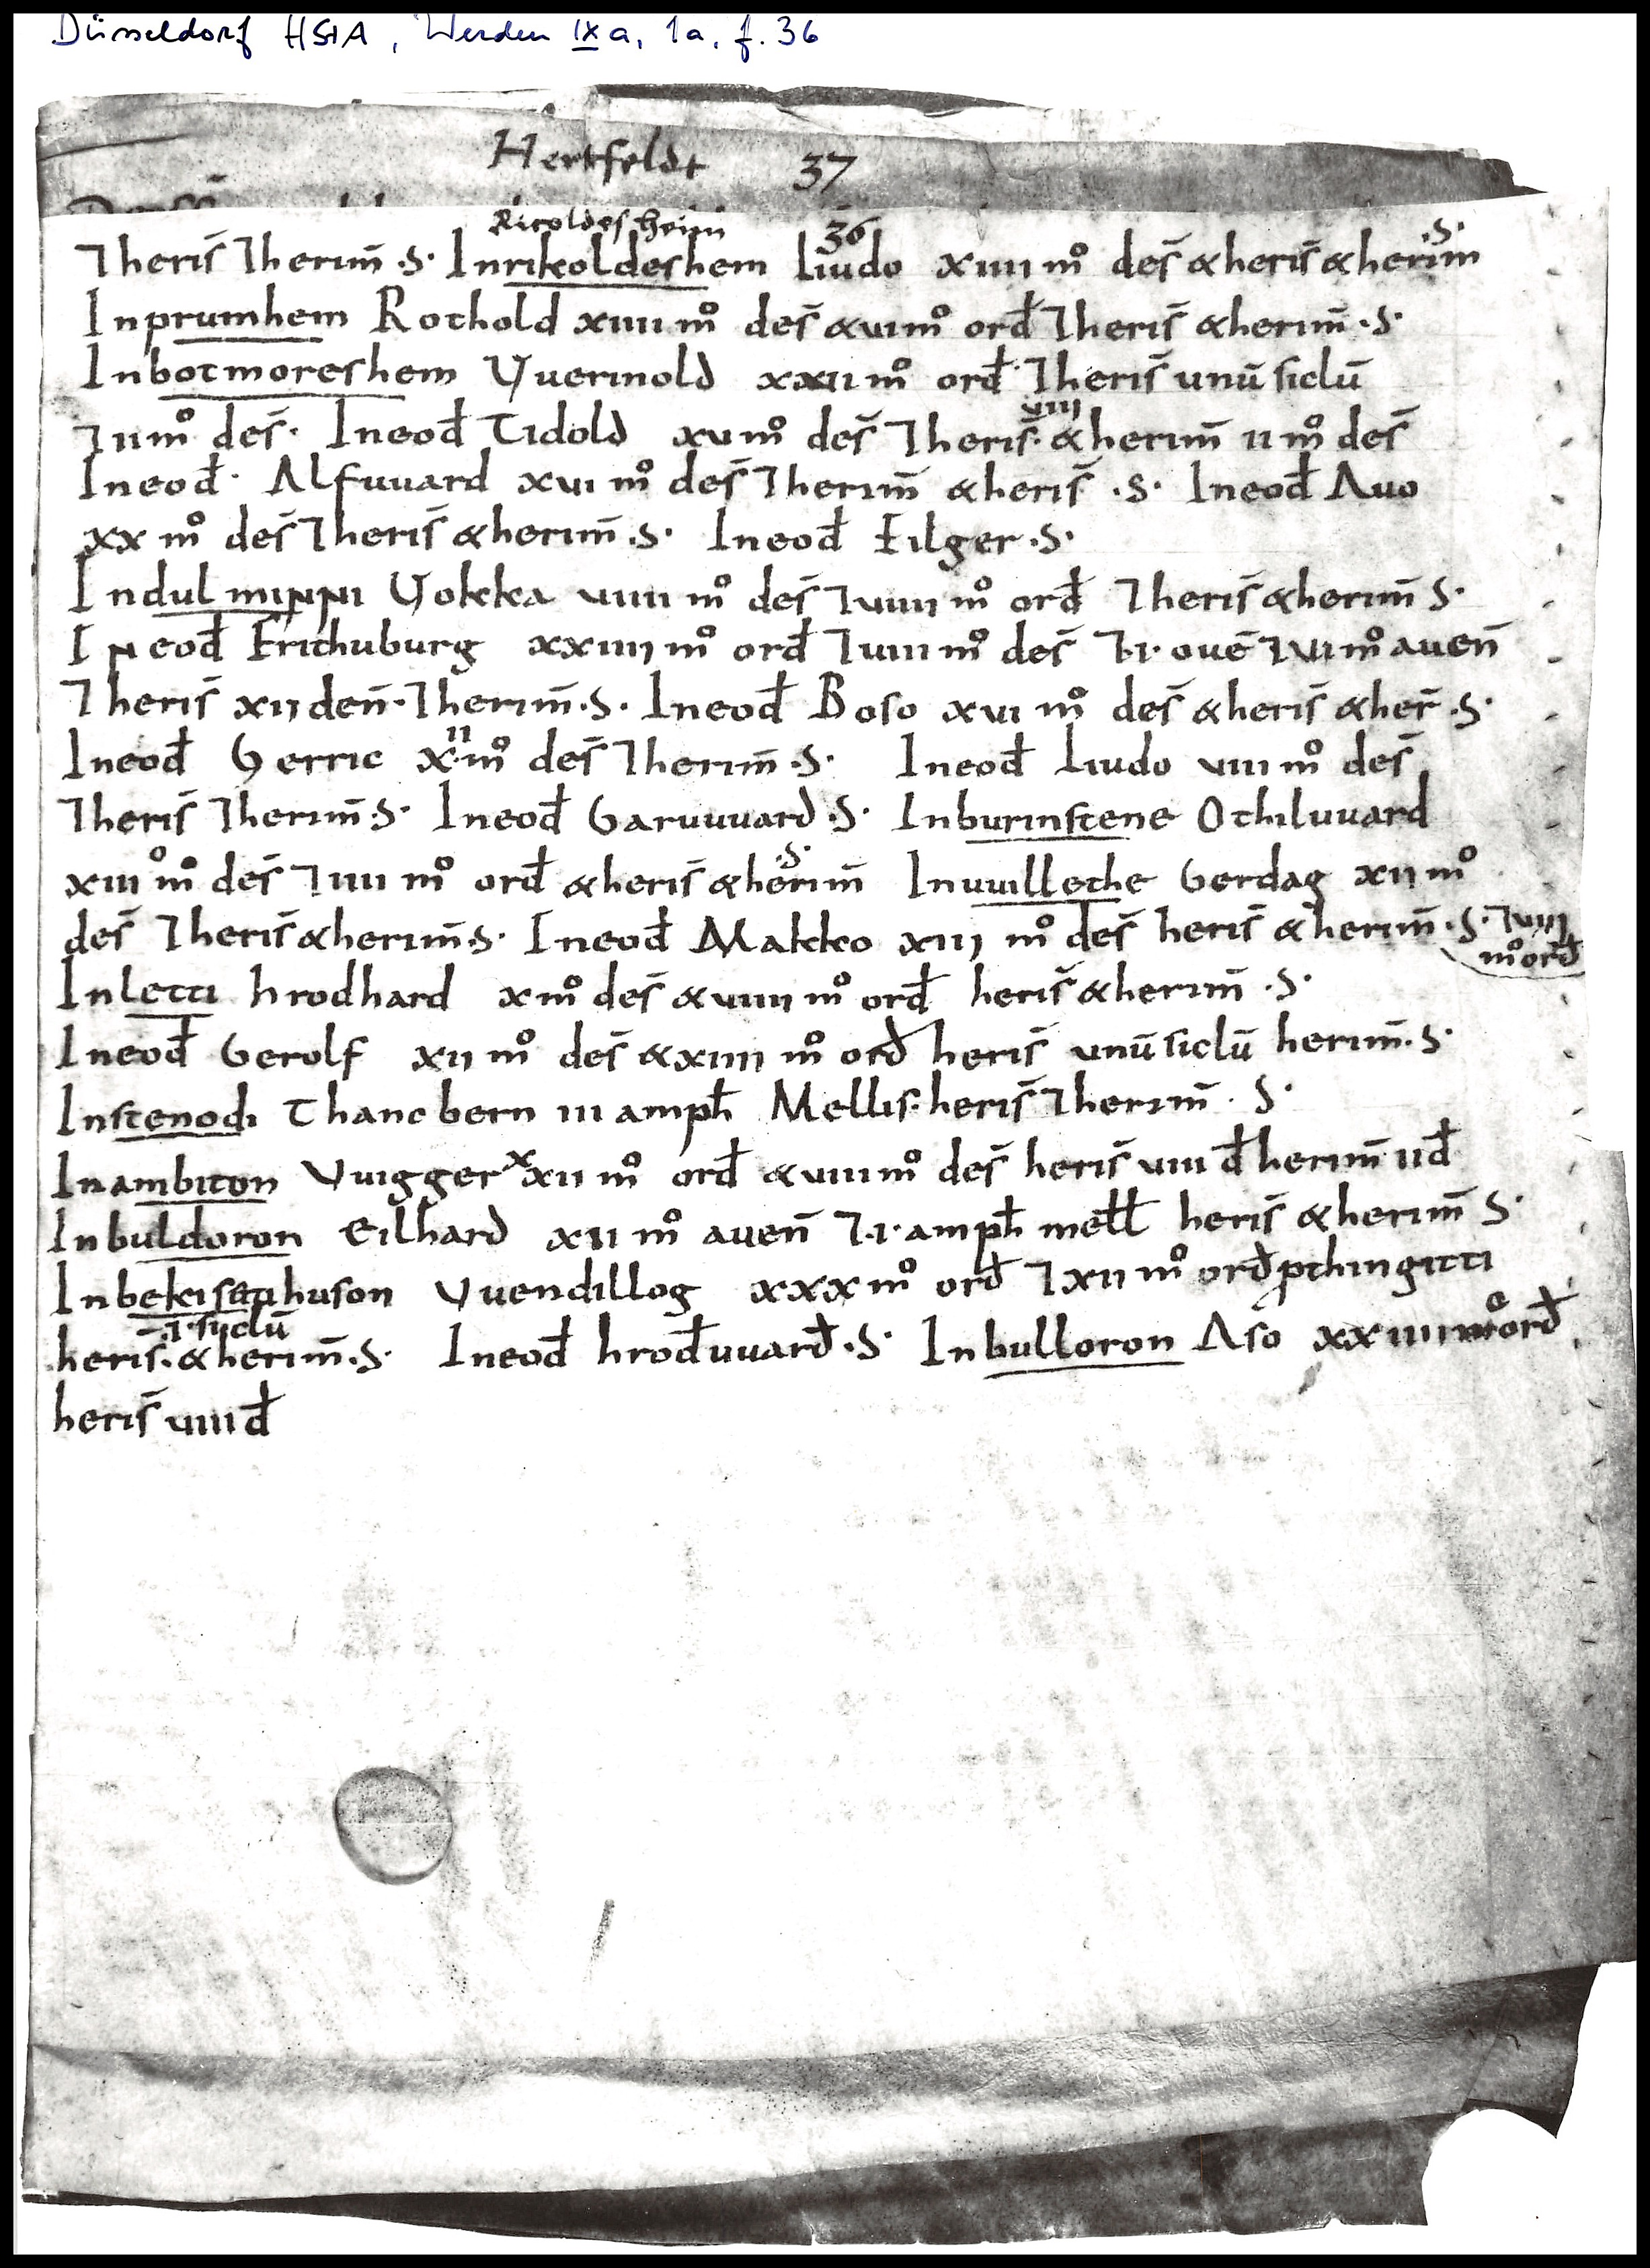 Düsseldorf HStA, Werden IX a, 1a, f. 36
Hertfeldt 37
Ricoldesheim 36
⁊heris̄ ⁊herim̄ .S. Inrikoldeshem Liudo xiiii m̊ des̄ &heris̄ &herim .S.
Inprumhem Rothold xiiii m̊ des̄ &vi m̊ ord̄ ⁊heris̄ &herim̄ .S.
Inbotmoreshem Vuerinold xxii m̊ ord̄ ⁊heris̄ unū siclū
⁊ii m̊ des̄. Ineod̄ Tidold xv m̊ des̄ ⁊heris̄. viii &herim̄ ii m̊ des̄
Ineod̄. Alfuuard xvi m̊ des̄ ⁊herim̄ &heris̄ .S. Ineod̄ Auo
xx m̊ des̄ ⁊heris̄ &herim̄ .S. Ineod̄ Eilger .S.
Indulminni Vokka viiii m̊ des̄ ⁊viiii m̊ ord̄ ⁊heris̄ &herim̄ S.
Ineod̄ Frithuburg xxiiii m̊ ord̄ ⁊viii m̊ des̄ ⁊.i. ouē ⁊vi m̊ aven̄
⁊heris̄ xii den̄. ⁊herim̄ .S. Ineod̄ Boso xvi m̊ des̄ &heris̄ &her̄ .S.
Ineod̄ Gerric x.ii m̊ des̄ ⁊herim̄ .S. Ineod̄ Liudo viii m̊ des̄
⁊heris̄ ⁊herim̄ .S. Ineod̄ Garuuuard .S. Inburinstene Othiluuard
xiii m̊ des̄ ⁊iiii m̊ ord̄ &heris̄ &herim̄ .S. Inuuillethe Gerdag xii m̊
des̄ ⁊heris̄ &herim̄ .S. Ineod̄ Makko xiii m̊ des̄ heris̄ &herim̄ .S. ⁊viii
m̊ ord̄
Inletti hrodhard x m̊ des̄ &viiii m̊ ord̄ heris̄ &herim̄ .S.
Ineod̄ Gerolf xii m̊ des̄ &xiiii m̊ ord̄ heris̄ unū siclū herim̄ .S.
Instenodi Thancbern iii amph̄ Mellis. heris̄ ⁊herim̄ . S.
Inambiton Vuigger xxii m̊ ord̄ &viii m̊ des̄ heris̄ viii d̄ herim̄ ii d̄
Inbuldoron Eilhard xii m̊ aven̄ ⁊.i. amph̄ mell̄ heris̄ &herim̄ S.
Inbeki Vuendillog xxx m̊ ord̄ ⁊xii m̊ ord̄ pthingitti
.i. siclū
heris̄. &herim̄ .S. Ineod̄ hrod̄uuard̄ .S. Inbulloron Aso xxiiii m̊ ord̄
heris̄ viiii d̄